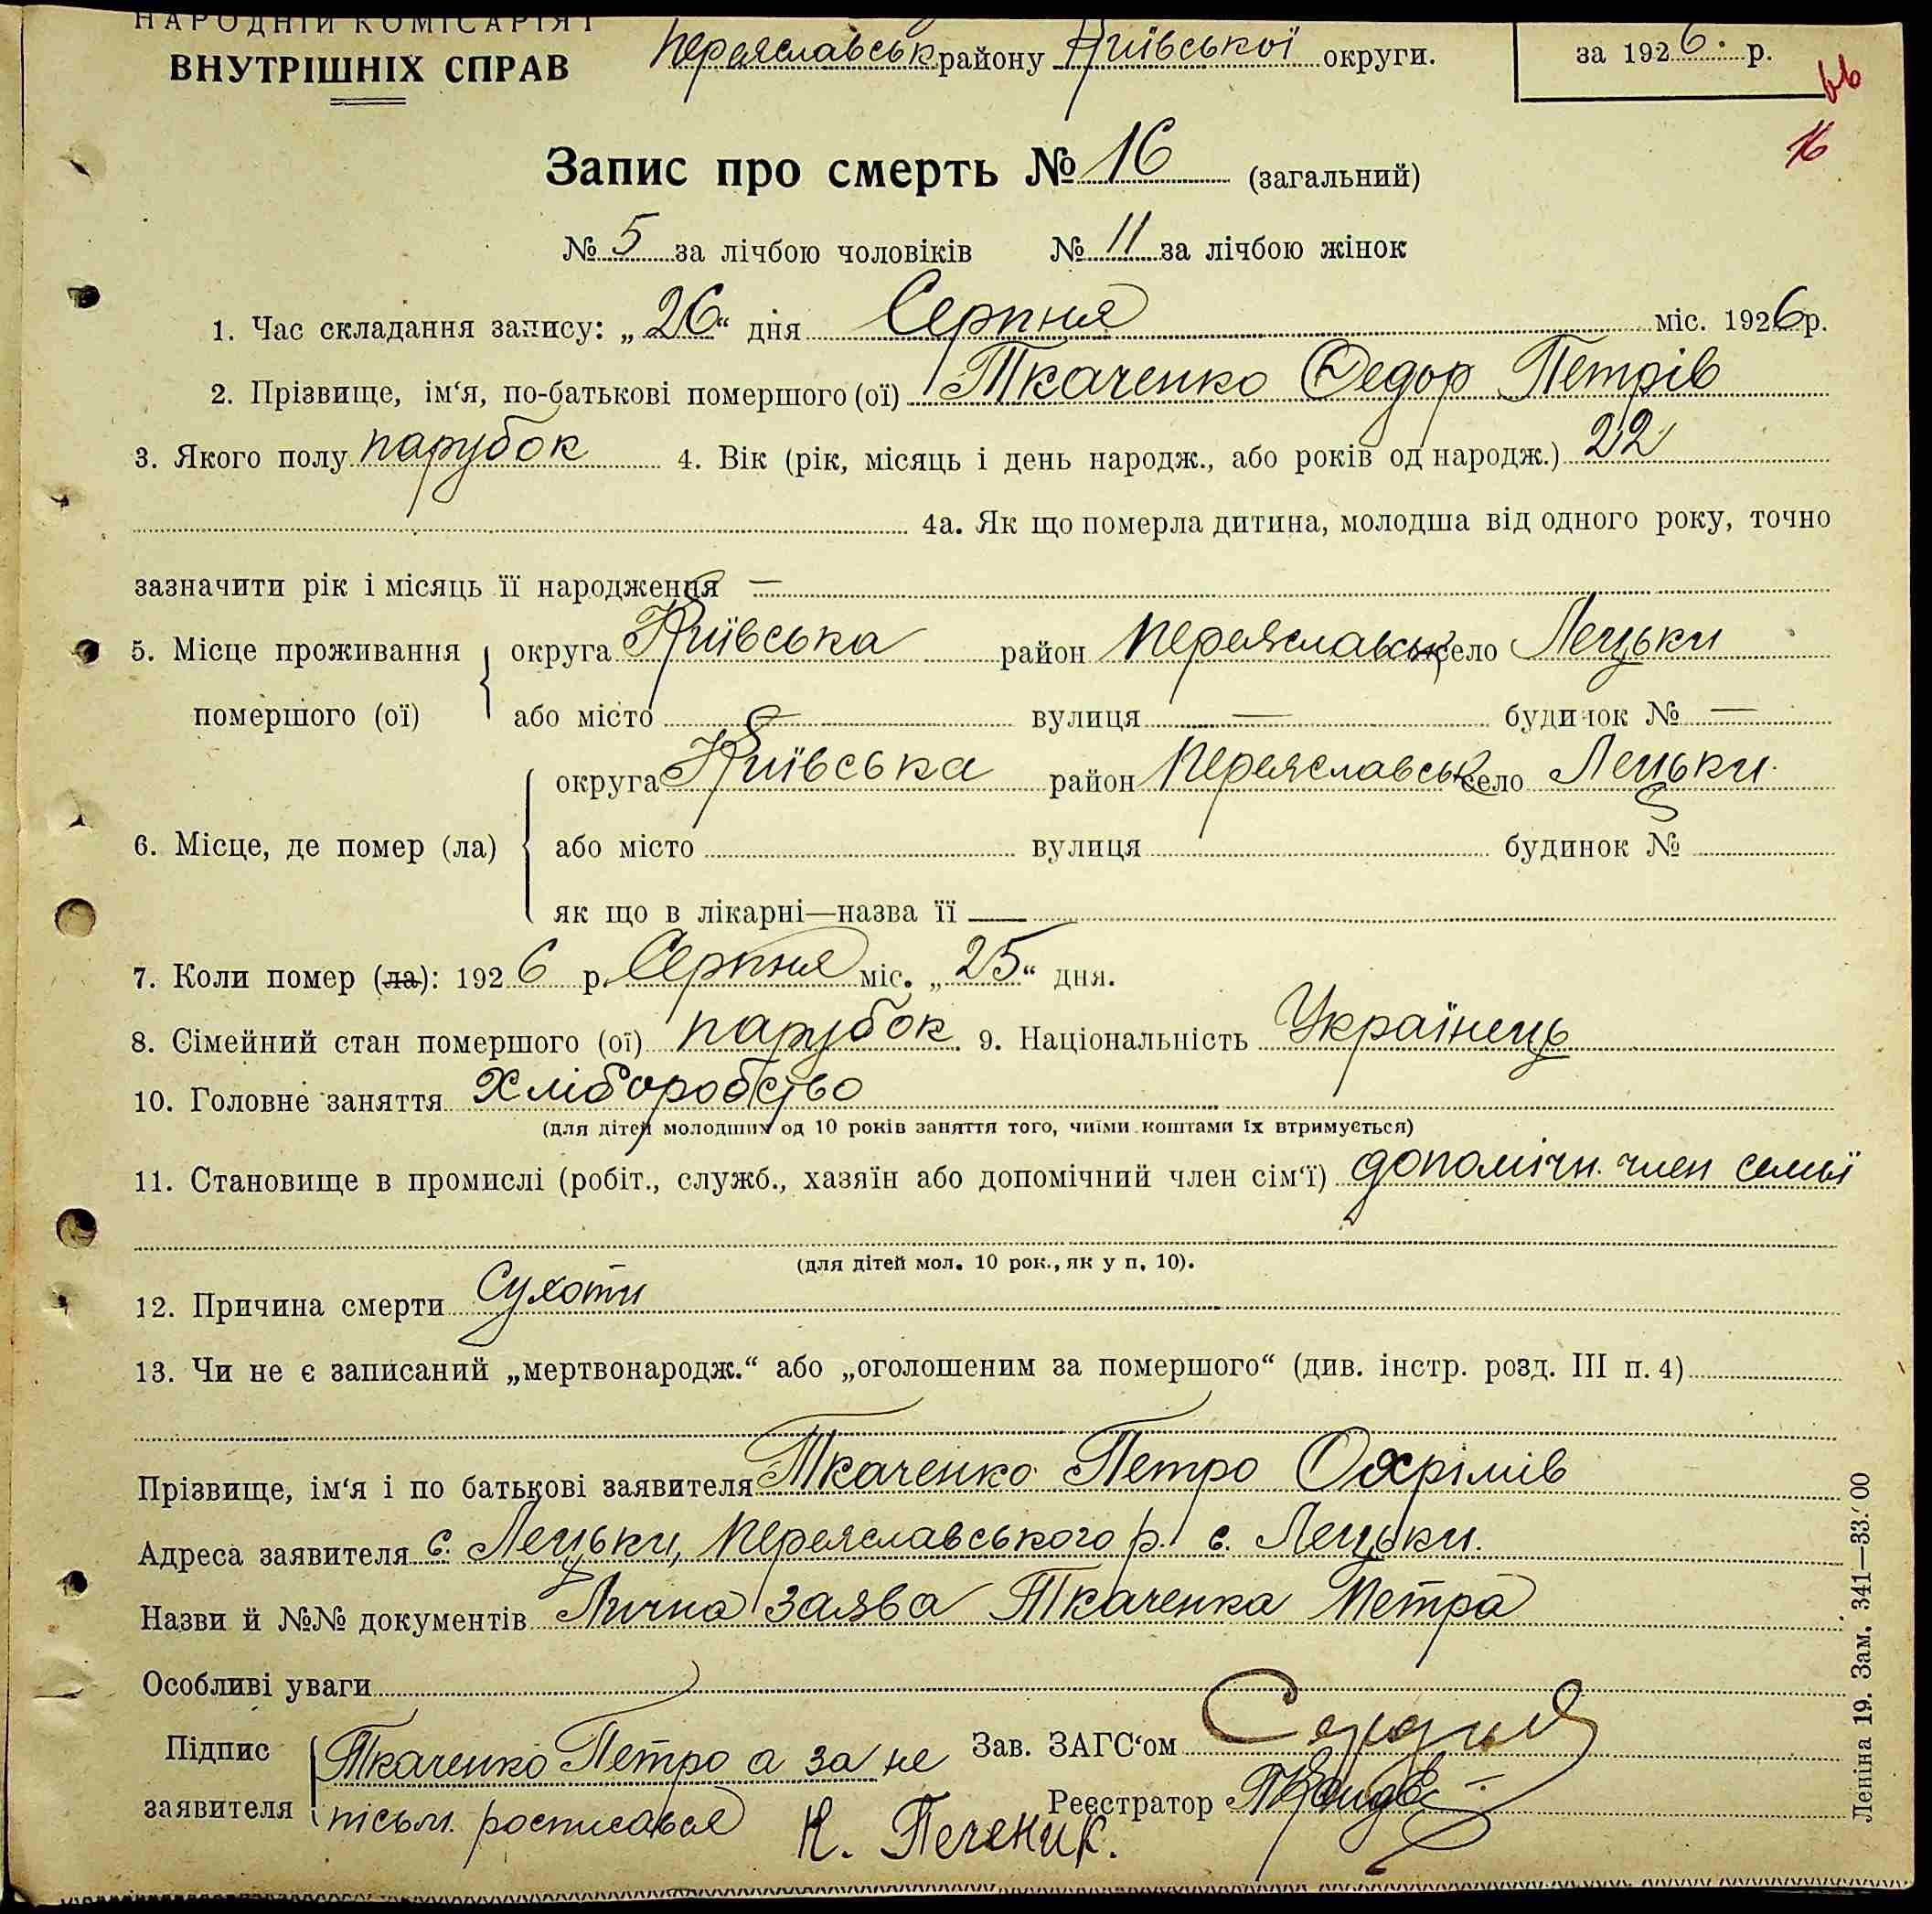 НАРОДНІЙ КОМІСАРІЯТ
ВНУТРІШНІХ СПРАВ
Переяславськ району Київської округи.
за 1926 р.
16
Запис про смерть № 16 (загальний)
№ 5 за лічбою чоловіків № 11 за лічбою жінок
1. Час складання запису: „26“ дня Серпня міс. 1926 р.
2. Прізвище, ім‘я, по-батькові помершого (ої) Ткаченко Федор Петрів
3. Якого полу парубок 4. Вік (рік, місяць і день народж., або років од народж.) 22
4а. Як що померла дитина, молодша від одного року, точно
зазначити рік і місяць її народження —
5. Місце проживання помершого (ої) округа Київська район Переяславськ село Лецьки
або місто — вулиця — будинок № —
6. Місце, де помер (ла) округа Київська район Переяславськ село Лецьки.
або місто вулиця будинок №
як що в лікарні—назва її —
7. Коли помер (ла): 1926 р. Серпня міс. „25“ дня.
8. Сімейний стан помершого (ої) парубок 9. Національність Українець
10. Головне заняття Хліборобство
(для дітей молодших од 10 років заняття того, чиїми коштами їх втримується)
11. Становище в промислі (робіт., служб., хазяїн або допомічний член сім‘ї) допомічн. член семьї
(для дітей мол. 10 рок., як у п. 10).
12. Причина смерти Сухоти
13. Чи не є записаний „мертвонародж.“ або „оголошеним за помершого“ (див. інстр. розд. III п. 4)
Прізвище, ім‘я і по батькові заявителя Ткаченко Петро Охрімів
Адреса заявителя с. Лецьки, Переяславського р. с. Лецьки.
Назви й №№ документів Лична заява Ткаченка Петра
Особливі уваги
Підпис заявителя Ткаченко Петро а за не
письм. росписався К. Печеник.
Зав. ЗАГС‘ом
Реєстратор
Леніна 19. Зам. 341—33.′00